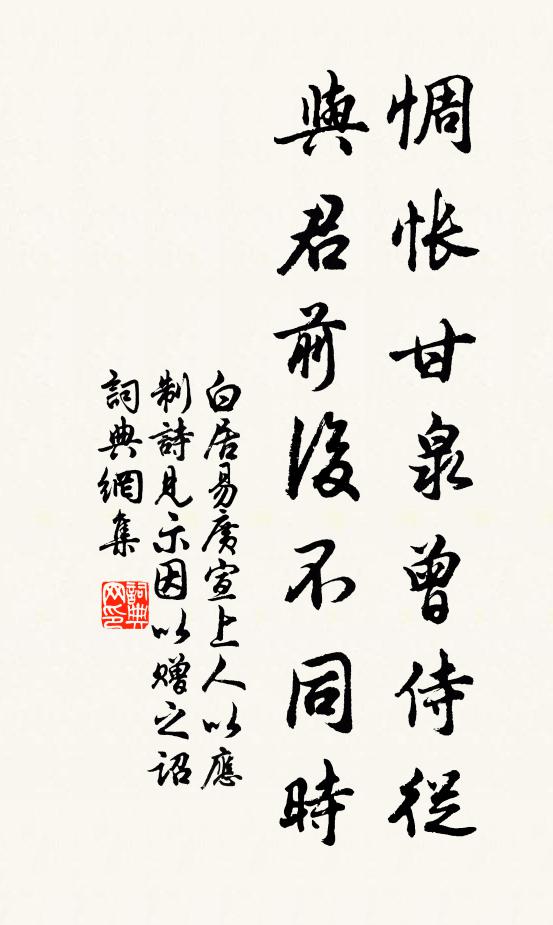 惆悵甘泉曾侍從
與君前後不同時
白居易廣宣上人以應
制詩見示因以贈之詔
詞典網集
詞典
网印